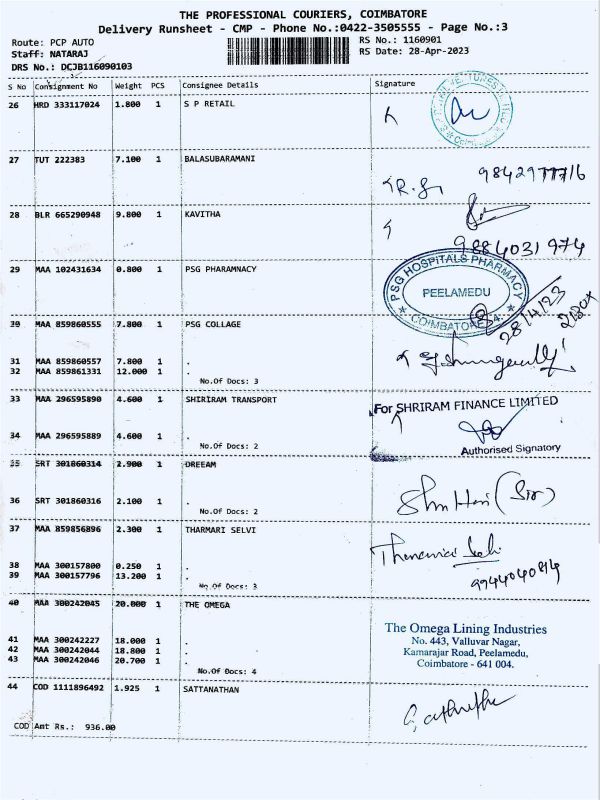 THE PROFESSIONAL COURIERS, COIMBATORE
Delivery Runsheet - CMP - Phone No.:0422-3505555 - Page No.:3
Route: PCP AUTO
RS No.: 1160901
Staff: NATARAJ
RS Date: 28-Apr-2023
DRS No.: DCJB116090103
S No Consignment No Weight PCS Consignee Details Signature
26 HRD 333117024 1.800 1 S P RETAIL
27 TUT 222383 7.100 1 BALASUBARAMANI
R.S
28 BLR 665290948 9.800 1 KAVITHA
9884031974
29 MAA 102431634 0.800 1 PSG PHARAMNACY
PSG HOSPITALS PHARMACY
PEELAMEDU
COIMBATORE
28/4/23
30 MAA 859860555 7.800 1 PSG COLLAGE
31 MAA 859860557 7.800 1 .
32 MAA 859861331 12.000 1 .
No.Of Docs: 3
33 MAA 296595890 4.600 1 SHIRIRAM TRANSPORT
For SHRIRAM FINANCE LIMITED
34 MAA 296595889 4.600 1 .
No.Of Docs: 2
Authorised Signatory
35 SRT 301860314 2.900 1 DREEAM
36 SRT 301860316 2.100 1 .
No.Of Docs: 2
(Sir)
37 MAA 859856896 2.300 1 THARMARI SELVI
38 MAA 300157800 0.250 1 .
39 MAA 300157796 13.200 1 .
No.Of Docs: 3
40 MAA 300242045 20.000 1 THE OMEGA
41 MAA 300242227 18.000 1 .
42 MAA 300242044 18.800 1 .
43 MAA 300242046 20.700 1 .
No.Of Docs: 4
The Omega Lining Industries
No. 443, Valluvar Nagar,
Kamarajar Road, Peelamedu,
Coimbatore - 641 004.
44 COD 1111896492 1.925 1 SATTANATHAN
COD Amt Rs.: 936.00